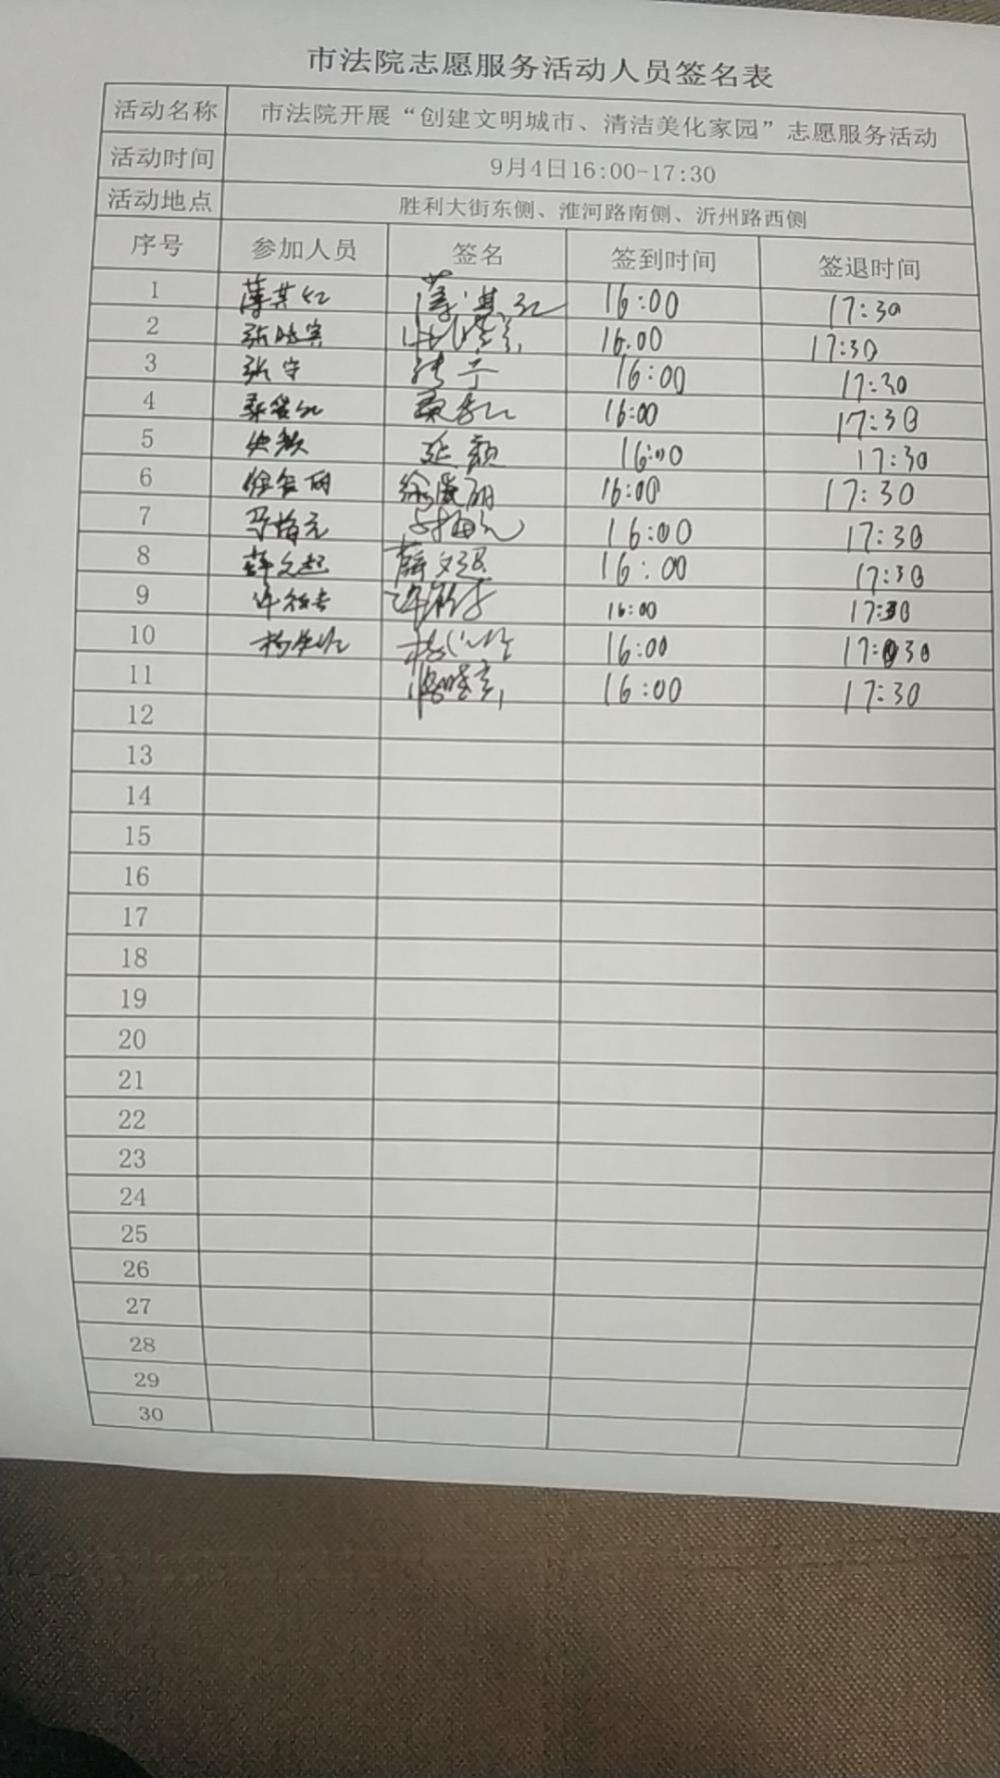 市法院志愿服务活动人员签名表
活动名称 市法院开展“创建文明城市、清洁美化家园”志愿服务活动
活动时间 9月4日16:00-17:30
活动地点 胜利大街东侧、淮河路南侧、沂州路西侧
序号 参加人员 签名 签到时间 签退时间
1 薄其红 薄其红 16:00 17:30
2 16:00 17:30
3 张宁 张宁 16:00 17:30
4 16:00 17:30
5 延颜 16:00 17:30
6 16:00 17:30
7 马梅元 马梅元 16:00 17:30
8 薛文起 薛文起 16:00 17:30
9 16:00 17:30
10 16:00 17:30
11 16:00 17:30
12
13
14
15
16
17
18
19
20
21
22
23
24
25
26
27
28
29
30